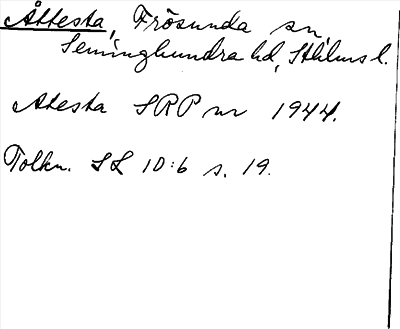 Åttesta, Frösunda sn,
Seminghundra hd, Sthlms l.
Atesta SRP nr 1944.
Tolkn. SL 10:6 s. 19.